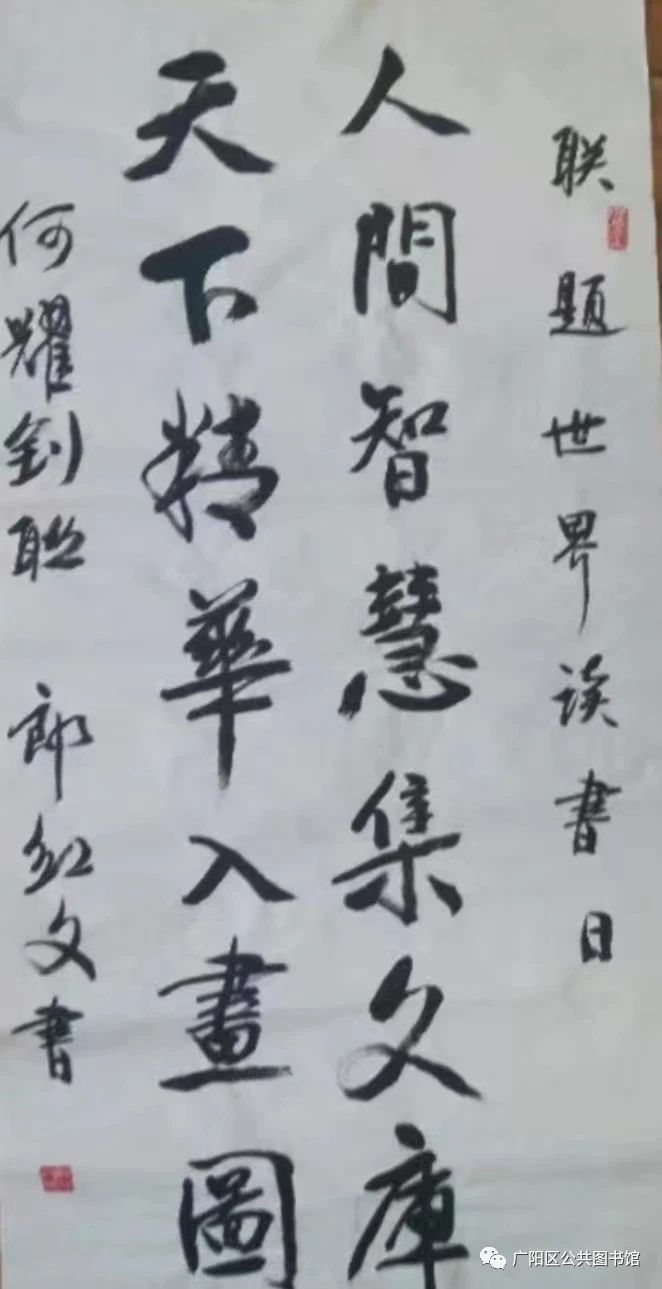 联题世界读书日
人間智慧集文庫
天下精華入畫圖
何耀钊联 郎红文書
广阳区公共图书馆